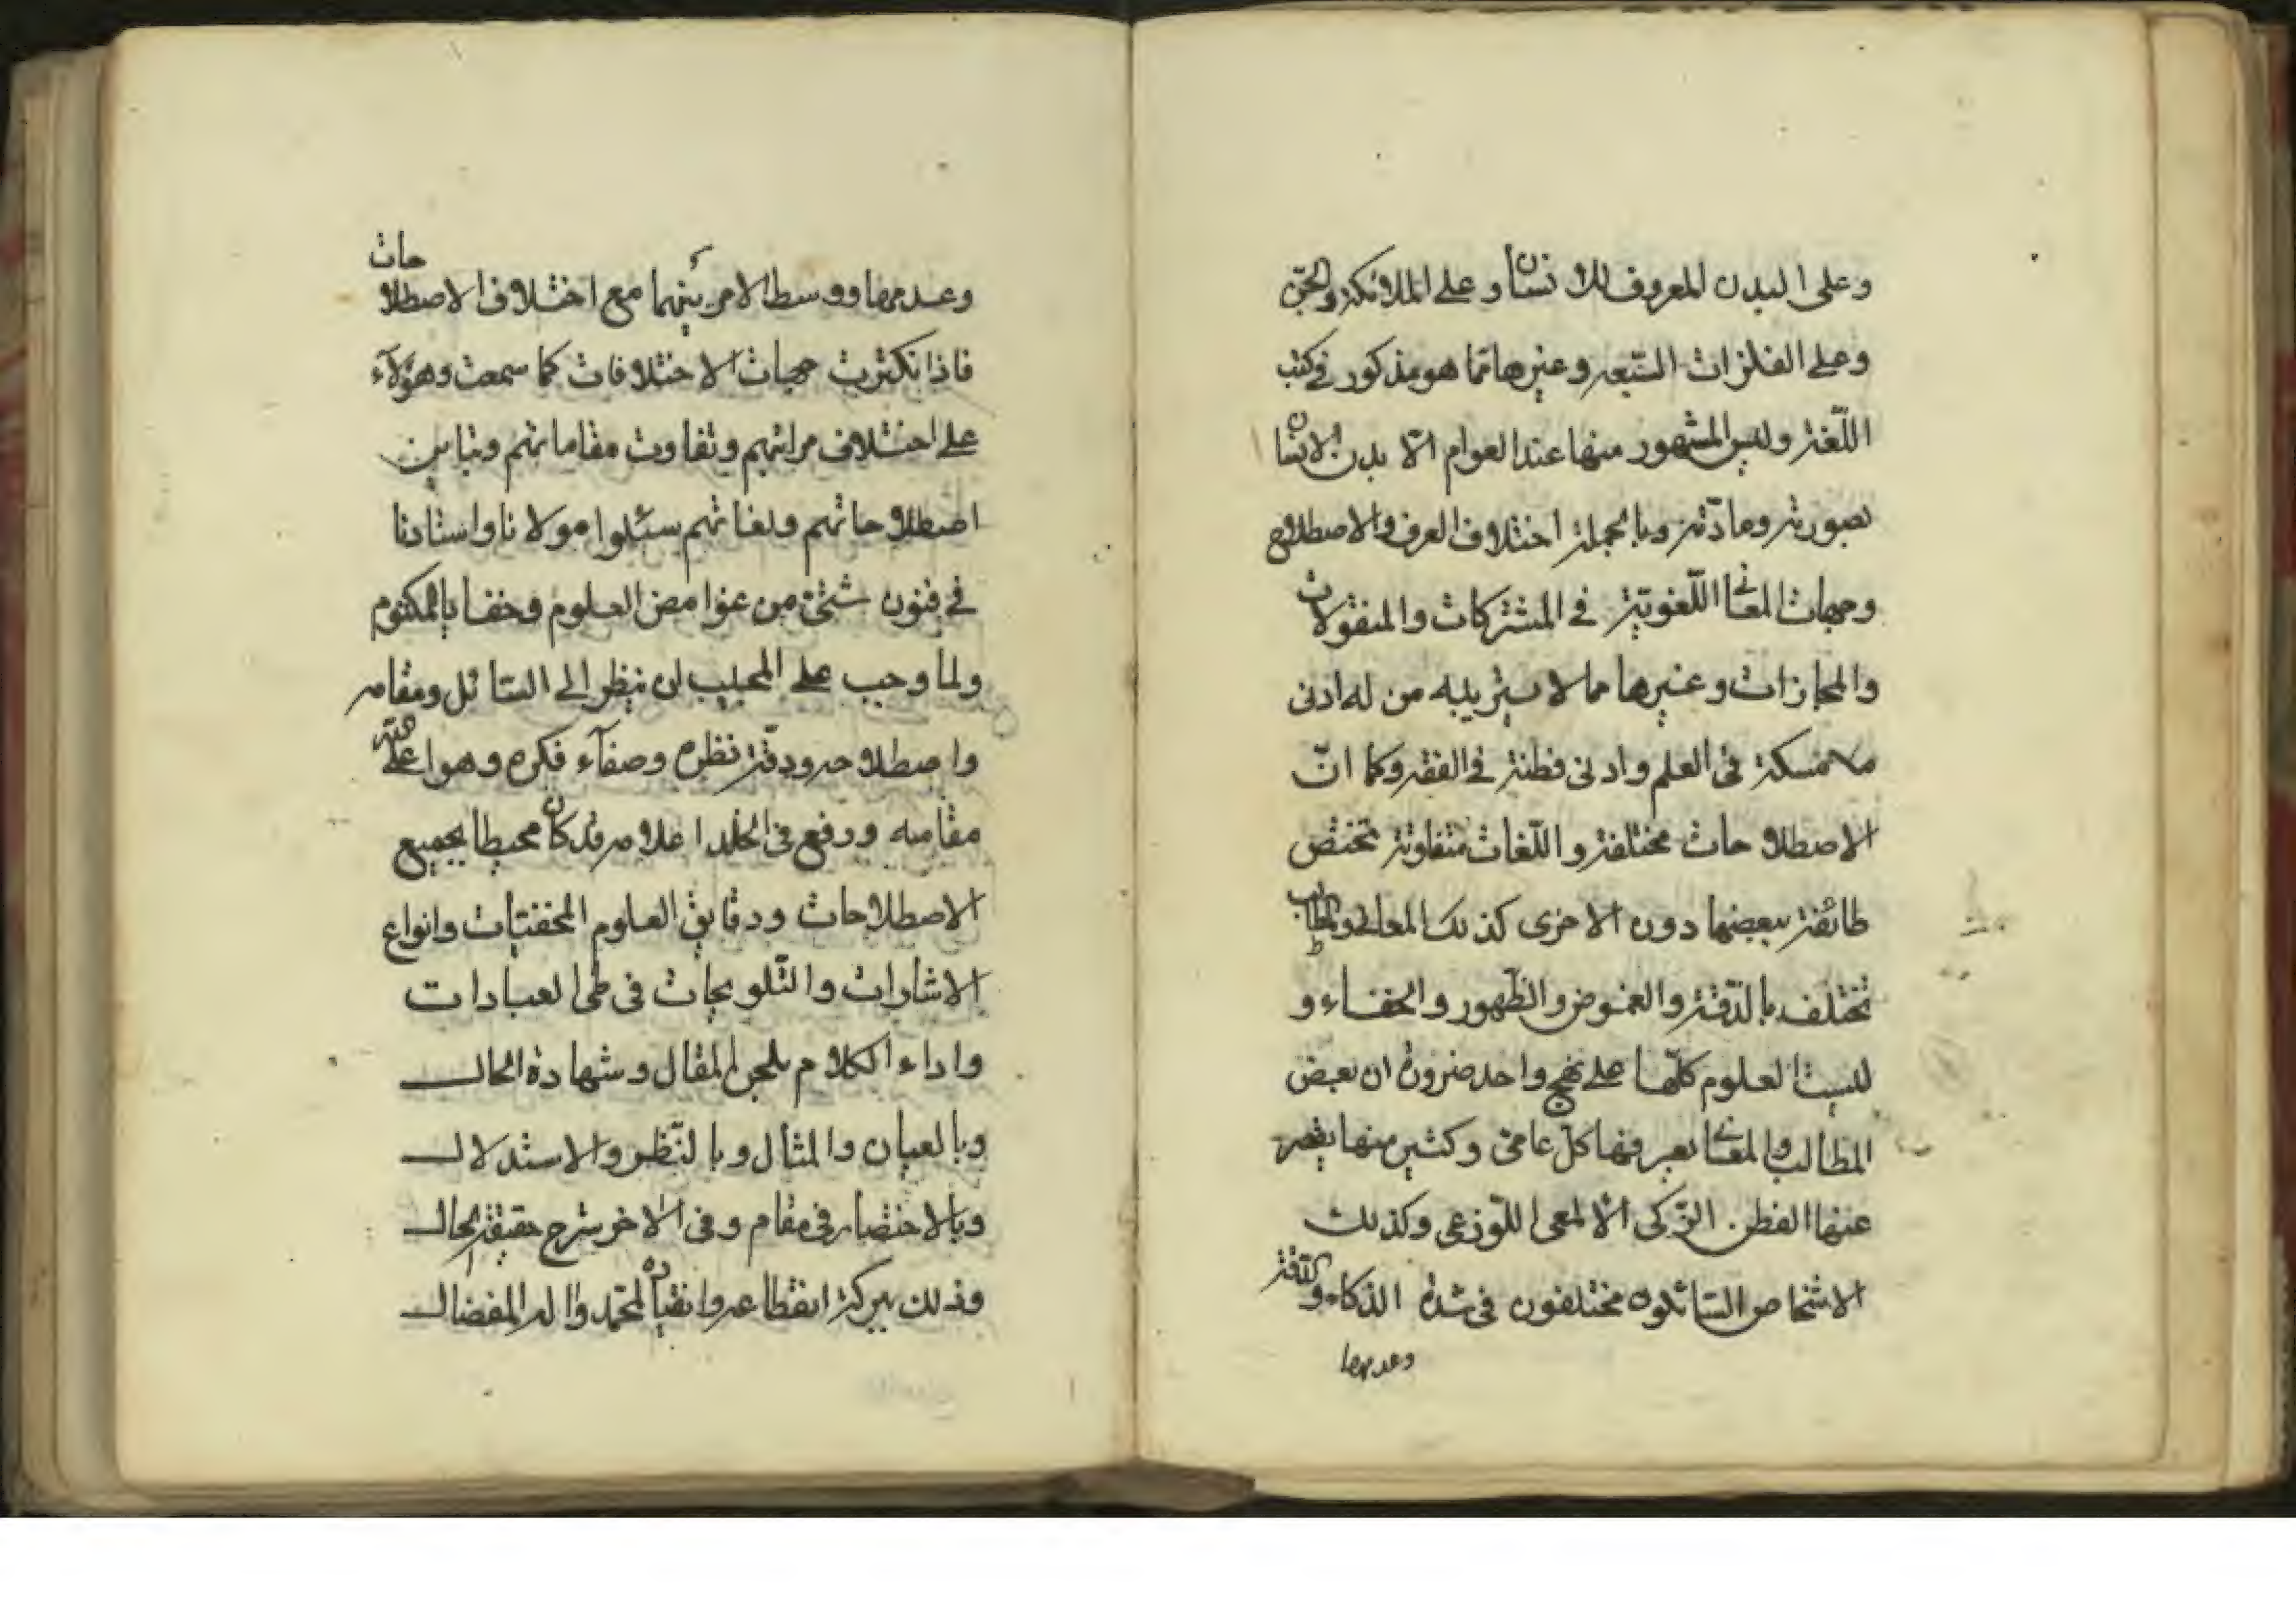 وعلى البدن المعروف للانسان وعلى الملائكة والجن
وعلى الفلزات السبعه وغيرها مما هو مذكور في كتب
اللّغة وليس المشهور منها عند العوام الّا بدن الانسان
بصورته ومادّته وبالجملة اختلاف العرف والاصطلاح
وجهات المعاني اللّغويّة في المشتركات والمنقولات
والمجازات وغيرها مما لا يستريبه من له ادنى
مسكة في العلم وادنى فطنة في الفقه وكما انّ
الاصطلاحات مختلفة واللّغات متفاوتة تختص
طائفة ببعضها دون الاخرى كذلك المعاني والمطالب
تختلف بالدّقة والغموض والظّهور والخفاء و
ليست العلوم كلّها على نهج واحد ضرورة ان بعض
المطالب والمعاني يعرفها كلّ عامي وكثير منها يقصر
عنها الفطن الزّكي الّا لمعي اللّوزعي وكذلك
الاشخاص السّائلون مختلفون في شدة الذكاء والدّقة
وعدمها
وعدمها ووسط الامر بينهما مع اختلاف الاصطلاحات
فاذا تكثرت جهات الاختلافات كما سمعت وهؤلآء
على اختلاف مراتبهم وتفاوت مقاماتهم وتباين
اصطلاحاتهم ولغاتهم سئلوا مولانا واستادنا
في فنون شتّى من غوامض العلوم وخفايا المكتوم
ولما وجب على المجيب ان ينظر الى السّائل ومقامه
واصطلاحه ودقّة نظره وصفآء فكره وهو اعلى اللّه
مقامه ورفع في الخلد اعلامه قد كان محيطا بجميع
الاصطلاحات ودقايق العلوم المخفيّات وانواع
الاشارات والتّلويحات في طى العبارات
واداء الكلام بلحن المقال وشهادة الحال
وبالعيان والمثال وبالنّظر والاستدلال
وبالاختصار في مقام وفى الاخر شرح حقيقة الحال
وذلك ببركة انقطاعه وانقياده لمحمّد واله المفضال